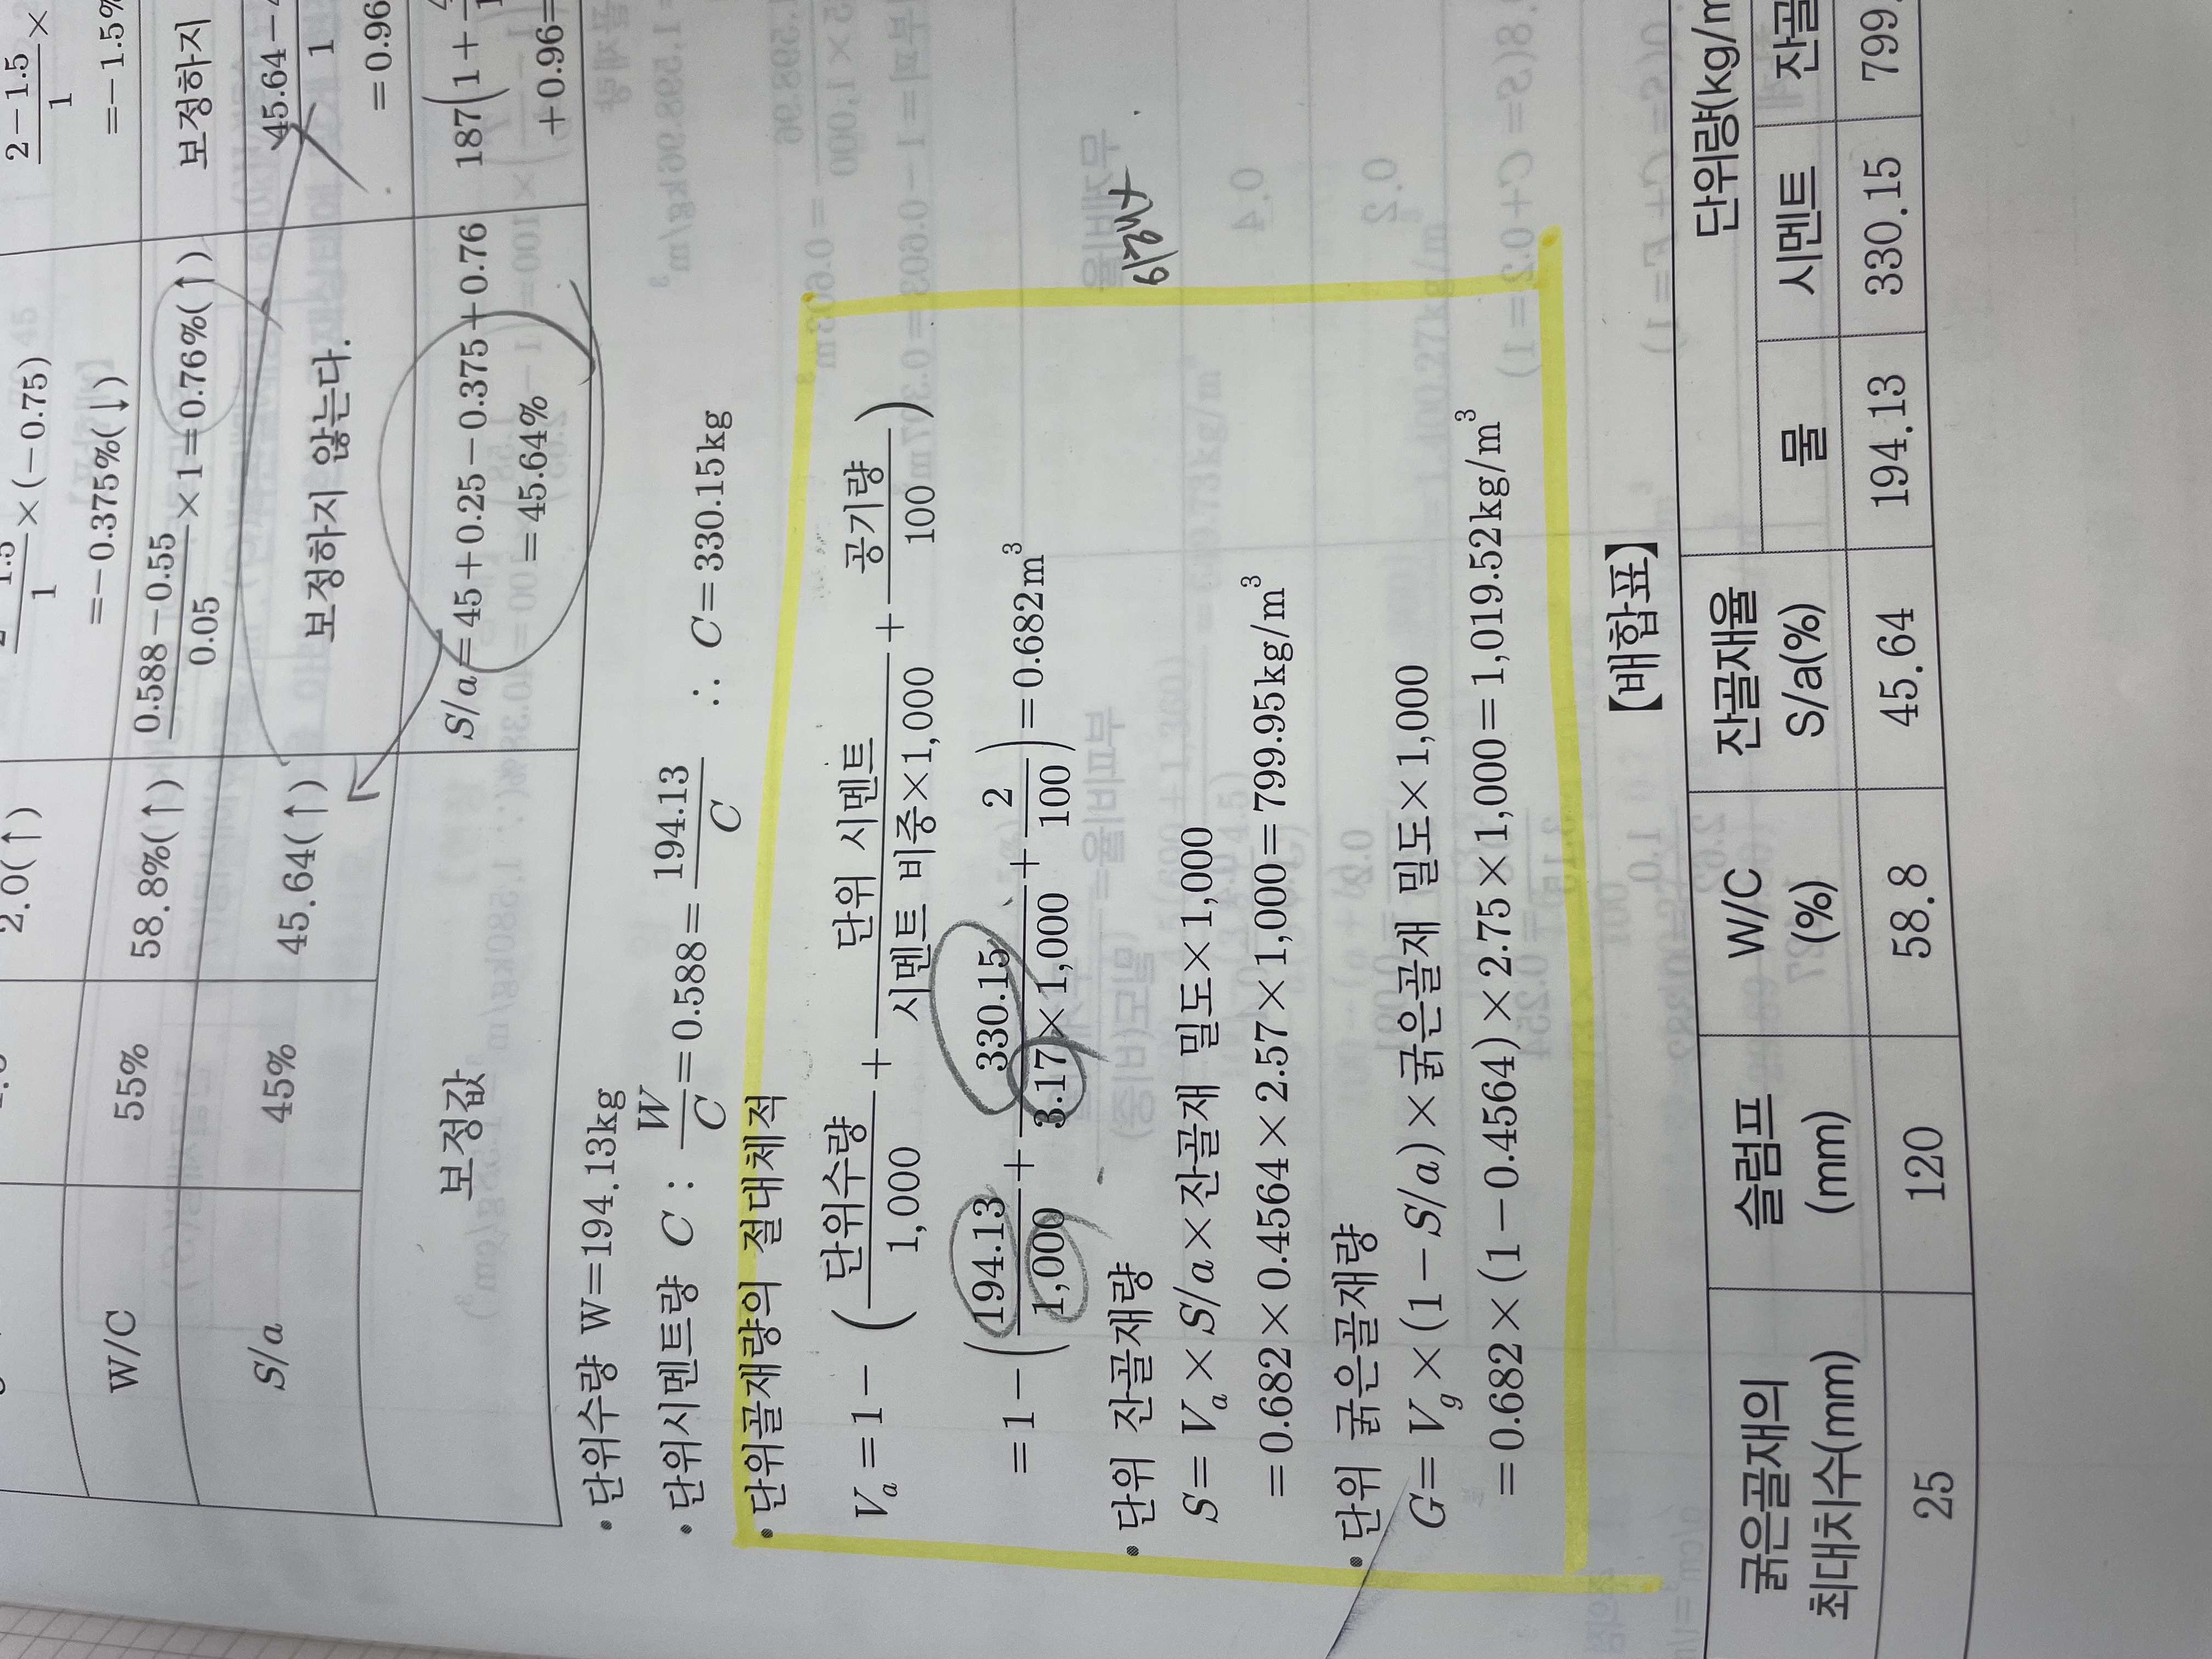 2.0(↑)
2−1.5/1 ×
1/1 ×(−0.75)
=−1.5%
=−0.375%(↓)
W/C 55% 58.8%(↑) 0.588−0.55/0.05 ×1=0.76%(↑) 보정하지
S/a 45% 45.64(↑) 보정하지 않는다. 45.64−4/1
=0.96
보정값 S/a=45+0.25−0.375+0.76 187(1+
=45.64% +0.96=
• 단위수량 W=194.13kg
• 단위시멘트량 C : W/C=0.588=194.13/C ∴ C=330.15kg
• 단위골재량의 절대체적
Vₐ=1−(단위수량/1,000 + 단위 시멘트/시멘트 비중×1,000 + 공기량/100)
=1−(194.13/1,000 + 330.15/3.17×1,000 + 2/100)=0.682m³
• 단위 잔골재량
S=Vₐ×S/a×잔골재 밀도×1,000
=0.682×0.4564×2.57×1,000=799.95kg/m³
• 단위 굵은골재량
G=V_g×(1−S/a)×굵은골재 밀도×1,000
=0.682×(1−0.4564)×2.75×1,000=1,019.52kg/m³
【배합표】
굵은골재의 최대치수(mm) 슬럼프 (mm) W/C (%) 잔골재율 S/a(%) 단위량(kg/m
물 시멘트 잔골
25 120 58.8 45.64 194.13 330.15 799.